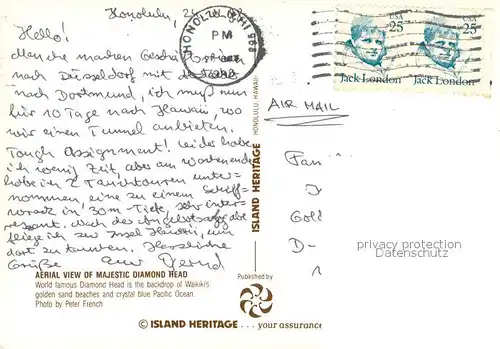 Honolulu, 24.
Hello!
Manche machen Geschäftsreisen
nach Düsseldorf
nach Dortmund, ich muß nun
für 10 Tage nach Hawaii, wo
wir einen Tunnel anbieten.
Tough Assignment! Leider habe
ich wenig Zeit, aber am Wochenende
habe ich 2 Tauchtouren unter-
nommen, eine zu einem Schiff-
wrack in 30m Tiefe, sehr inter-
ressant. Nach der Angebotsabgabe
fliege ich zur Insel Hawaii, um
dort zu tauchen. Herzliche
Grüße Euer Bernd
HONOLULU, HI 968
PM
USA
25
Jack London
USA
25
Jack London
AIR MAIL
Fam
D-
privacy protection
Datenschutz
HONOLULU, HAWAII
ISLAND HERITAGE
AERIAL VIEW OF MAJESTIC DIAMOND HEAD
World famous Diamond Head is the backdrop of Waikiki's
golden sand beaches and crystal blue Pacific Ocean.
Photo by Peter French
Published by
© ISLAND HERITAGE...your assurance